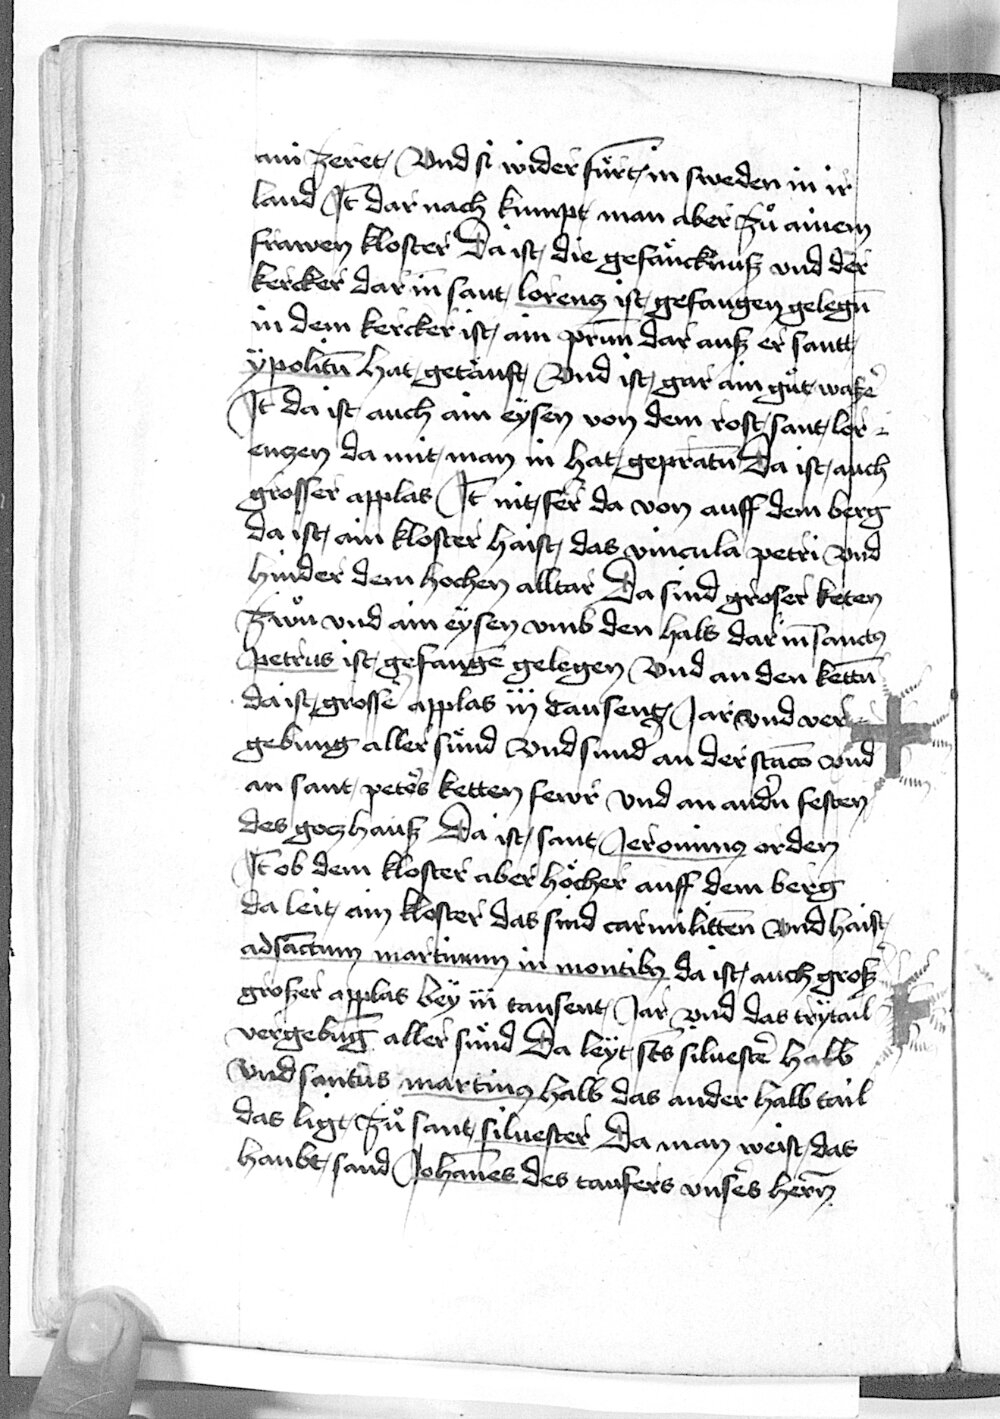 ain zeret Vnd si wider fürt in sweden in ir
land It dar nach kumpt man aber zů ainem
frawen kloster Da ist die gefäncknuß vnd der
kercker dar in sant lorencz ist gefangen gelegn̄
in dem kercker ist ain prun̄ dar auß er sant
ÿpolitū hat getäuft Vnd ist gar ain gůt waßer
It da ist auch ain eÿsen von dem rost sant lor
enczen da mit man in hat gepratn̄ Da ist auch
grosser applas It nit fer da von auff dem berg
da ist ain kloster haist das vincula petri Vnd
hinder dem hochen alltar Da sind groser keten
zwů vnd ain eÿsen vmb den hals dar in sanctus
petrus ist gefangē gelegen Vnd an den kettn̄
da ist grosser applas iij tausent Jar vnd ver
gebung aller sünd Vnd sund an der stacō vnd
an sant peters ketten fewr Vnd an andern festen
des goczhauß Da ist sant Jeronimus orden
It ob dem kloster aber höcher auff dem berg
da leit ain kloster das sind carmilittēn Vnd haist
ad sāctum martinum in montibus da ist auch groß
großer applas beÿ iij tausent Jar Vnd das trÿtail
vergebūg aller sünd Da leÿt scts siluester halb
Vnd santus martinus halb das ander halb tail
das ligt zů sant siluester Da man weist das
haubt sand Johanes des taufers vnsers herrn̄